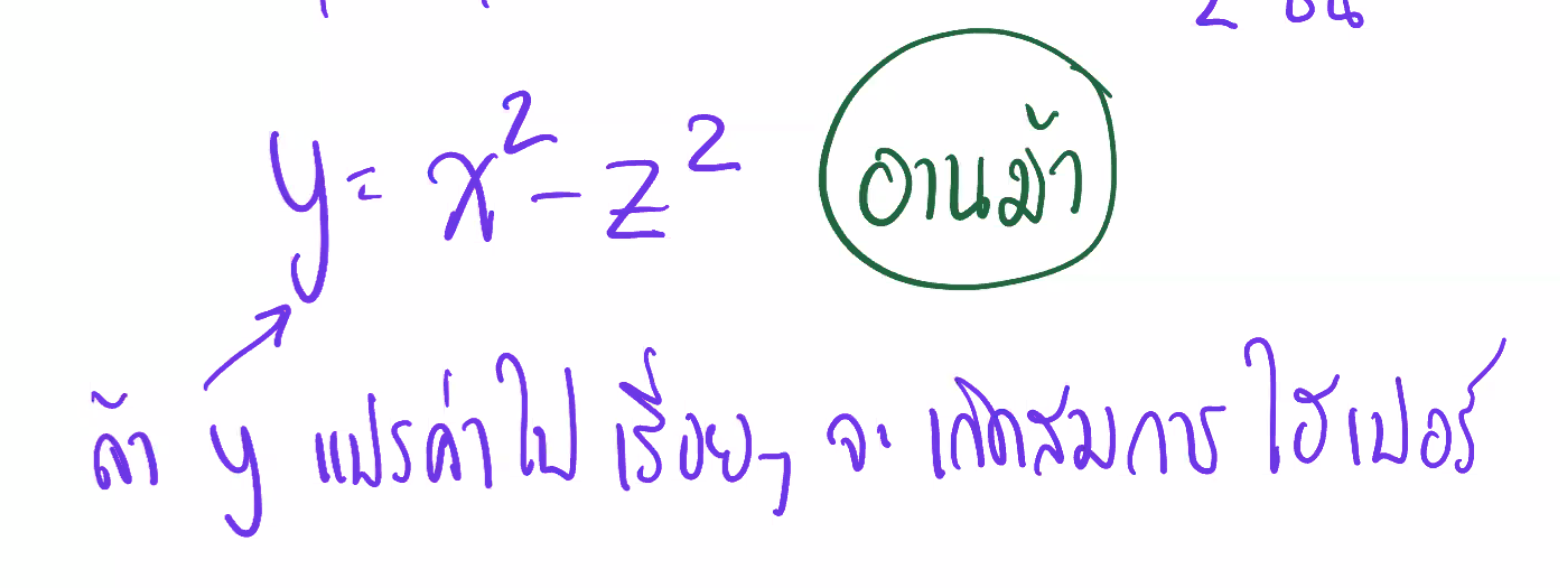 2 ชั้น
y = x² - z² อานม้า
ถ้า y แปรค่าไป เรื่อยๆ จะ เกิดสมการ ไฮเปอร์